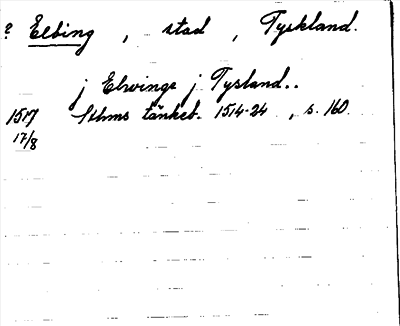 ? Elbing, stad, Tyskland.
j Elwinge j Tysland..
1517 Sthms tänkeb. 1514-24, s. 160.
17/8